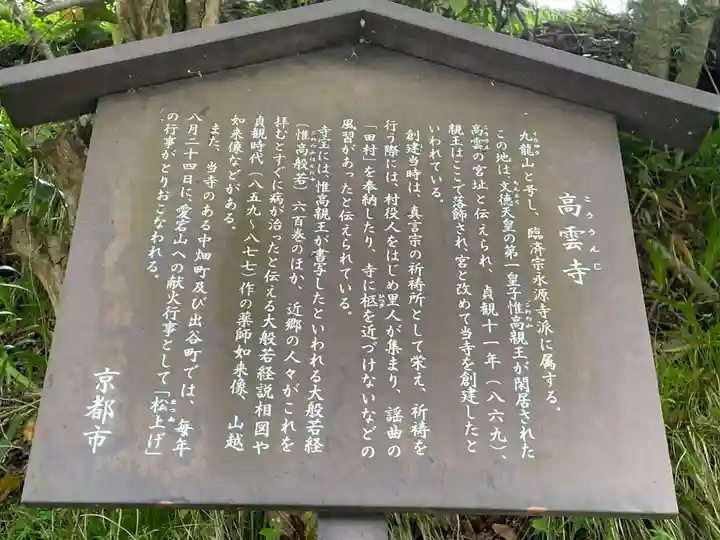 高雲寺
こううんじ
九龍山と号し、臨済宗永源寺派に属する。
この地は、文徳天皇の第一皇子惟高親王が閑居された
高雲の宮址と伝えられ、貞観十一年（八六九）、
親王はここで落飾され、宮と改めて当寺を創建したと
いわれている。
創建当時は、真言宗の祈祷所として栄え、祈祷を
行う際には、村役人をはじめ里人が集まり、謡曲の
「田村」を奉納したり、寺に柩を近づけないなどの
風習があったと伝えられている。
寺宝には、惟高親王が書写したといわれる大般若経
（惟高般若）六百巻のほか、近郷の人々がこれを
拝むとすぐに病が治ったと伝える大般若経説相図や
貞観時代（八五九〜八七七）作の薬師如来像、山越
如来像などがある。
また、当寺のある中畑町及び出谷町では、毎年
八月二十四日に、愛宕山への献火行事として「松上げ」
の行事がとりおこなわれる。
京都市